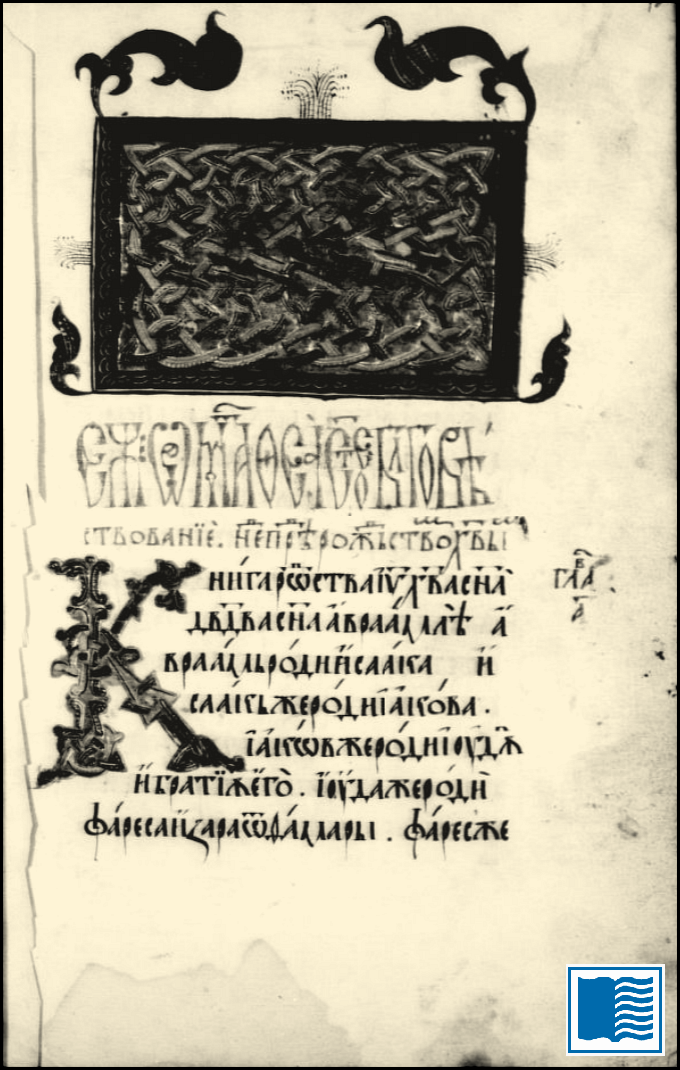 ЕЖЕ Ѿ МАТѲЕꙖ СТ҃ОЕ БЛ҃ГОВѢ
ствованїе. н҃е пре рожьством хв҃ы
Книга рѡ҃ства і҃у х҃ва сн҃а
дв҃два сн҃а авраамлѣ а
враамъ роди їсаака и
саакъ же роди іакова.
їакѡв же роди іоудѫ
и братїѫ его. їоуда же роди
фареса и зара ѿ фамары. фарес же
гла҃в
а҃